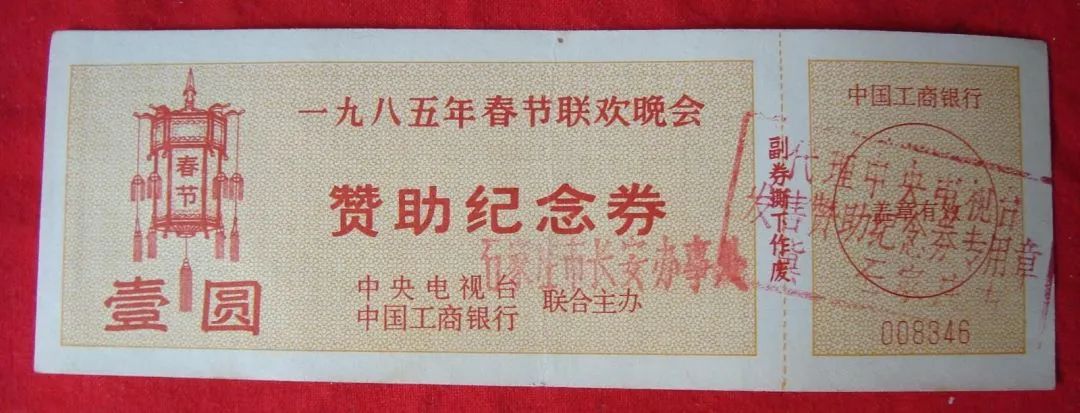 一九八五年春节联欢晚会
春节
赞助纪念券
壹圆
中央电视台
中国工商银行
联合主办
石家庄市长安办事处
副券撕下作废
中国工商银行
盖章有效
代理中央电视台
发售赞助纪念券专用章
008346